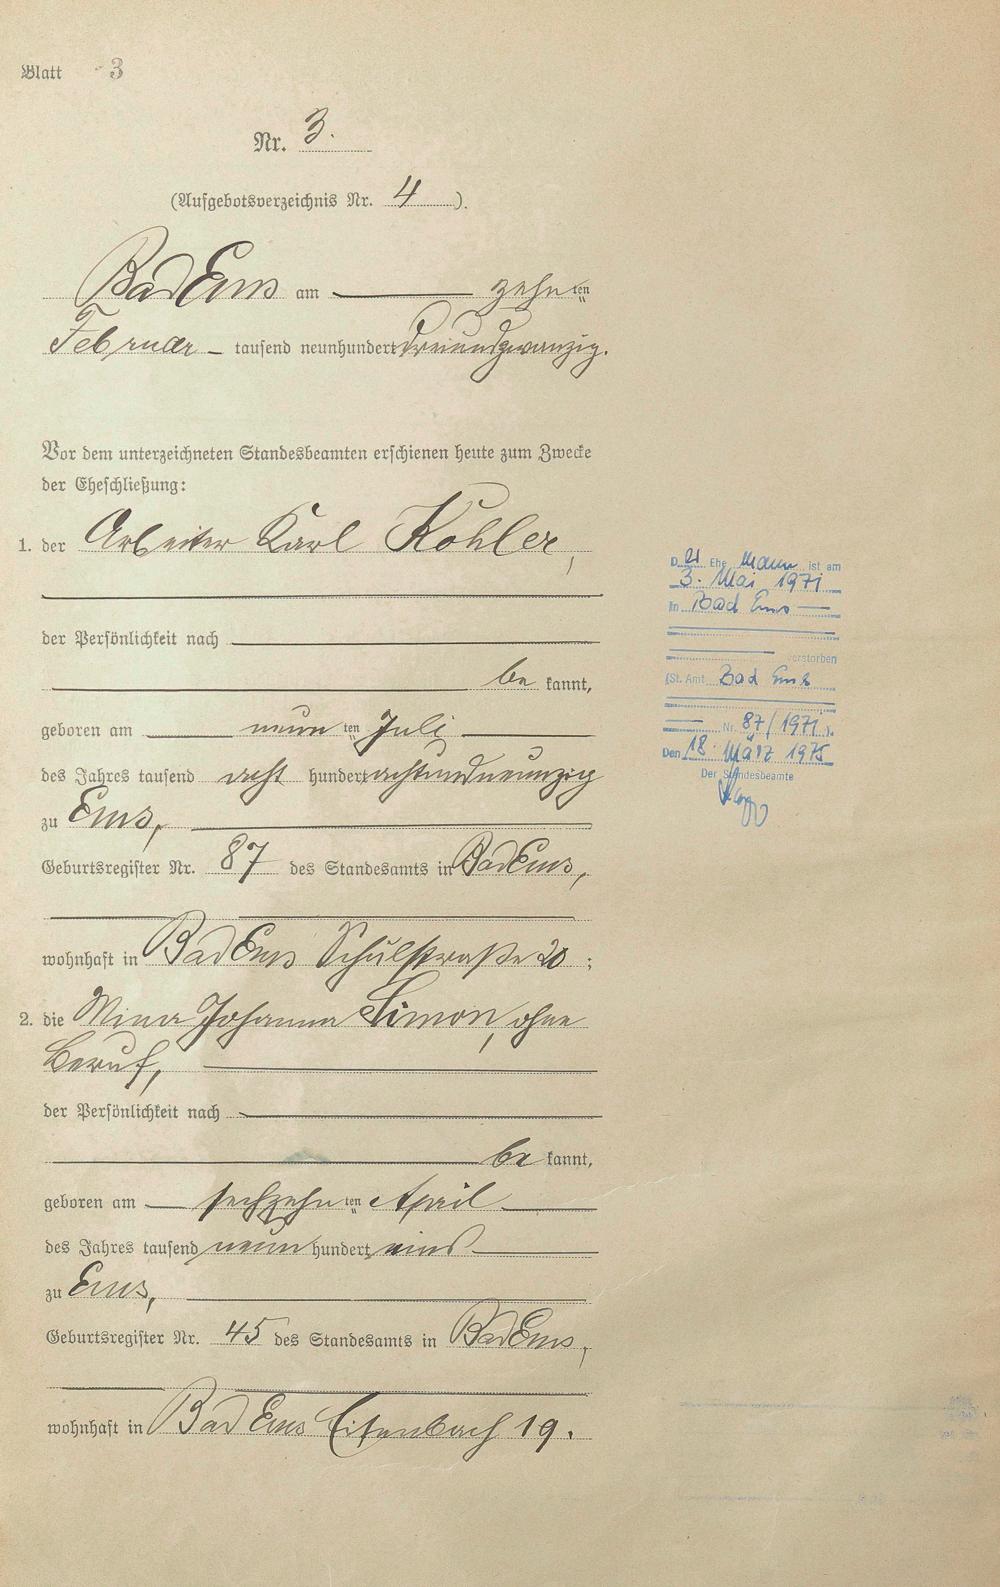 Blatt 3
Nr. 3.
(Aufgebotsverzeichnis Nr. 4).
Bad Ems am zehnten
Februar tausend neunhundert dreiundzwanzig.
Vor dem unterzeichneten Standesbeamten erschienen heute zum Zwecke
der Eheschließung:
1. der Arbeiter Karl Kohler,
der Persönlichkeit nach
be kannt,
geboren am neunten Juli
des Jahres tausend acht hundert achtundneunzig
zu Ems,
Geburtsregister Nr. 87 des Standesamts in Bad Ems,
wohnhaft in Bad Ems Schulstraße 20;
2. die Mina Johanna Simon, ohne
Beruf,
der Persönlichkeit nach
be kannt,
geboren am sechzehnten April
des Jahres tausend neun hundert eins
zu Ems,
Geburtsregister Nr. 45 des Standesamts in Bad Ems,
wohnhaft in Bad Ems Eisenbach 19.
Der Ehemann ist am
3. Mai 1971
in Bad Ems
verstorben
(St. Amt Bad Ems
Nr. 87/1971).
Den 18. März 1975
Der Standesbeamte